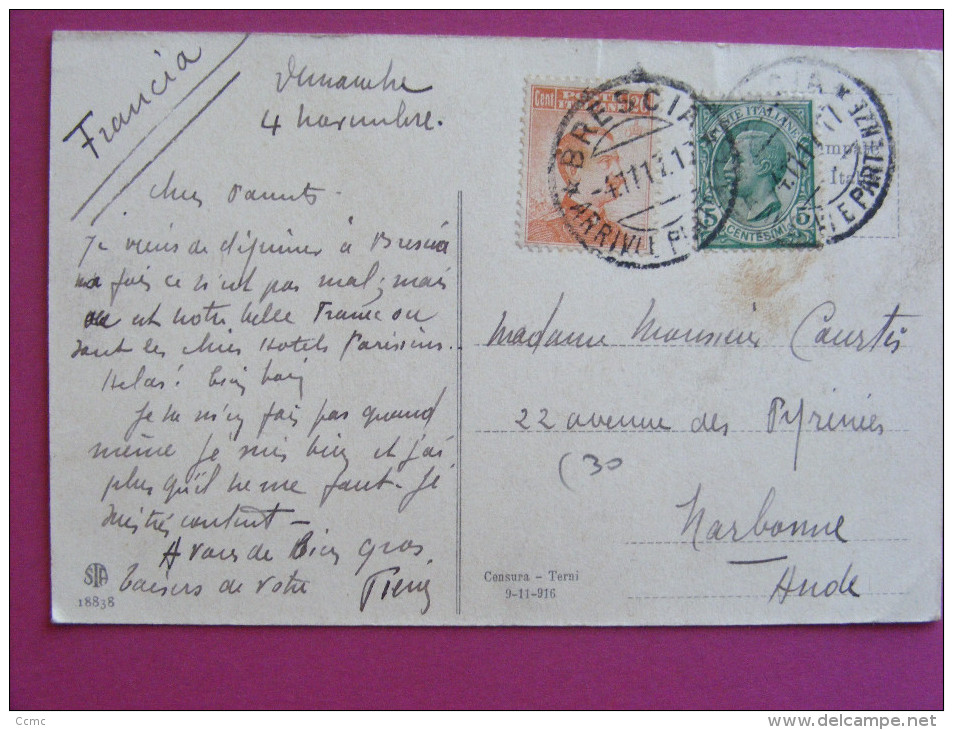 Francia
Dimanche
4 novembre.
Chers Parents
Je viens de déjeuner à Brescia
ma fois ce n'est pas mal; mais
ou est notre belle France ou
sont les chers Hotels Parisiens.
Helas! bien loin
Je ne m'en fais pas quand
même je suis bien et j'ai
plus qu'il ne me faut. Je
suis très content –
A vous de bien gros
baisers de votre Pierre
STA
18838
Cent POSTE ITALIANE 20
BRESCIA
ARRIVI E P
POSTE ITALIANE
5 CENTESIMI 5
ARRIVI E PARTENZE
Stampate
Ital
Madame Monsieur Courtès
22 avenue des Pyrénées
(30
Narbonne
Aude
Censura – Terni
9-11-916
Ccmc
delcampe.net